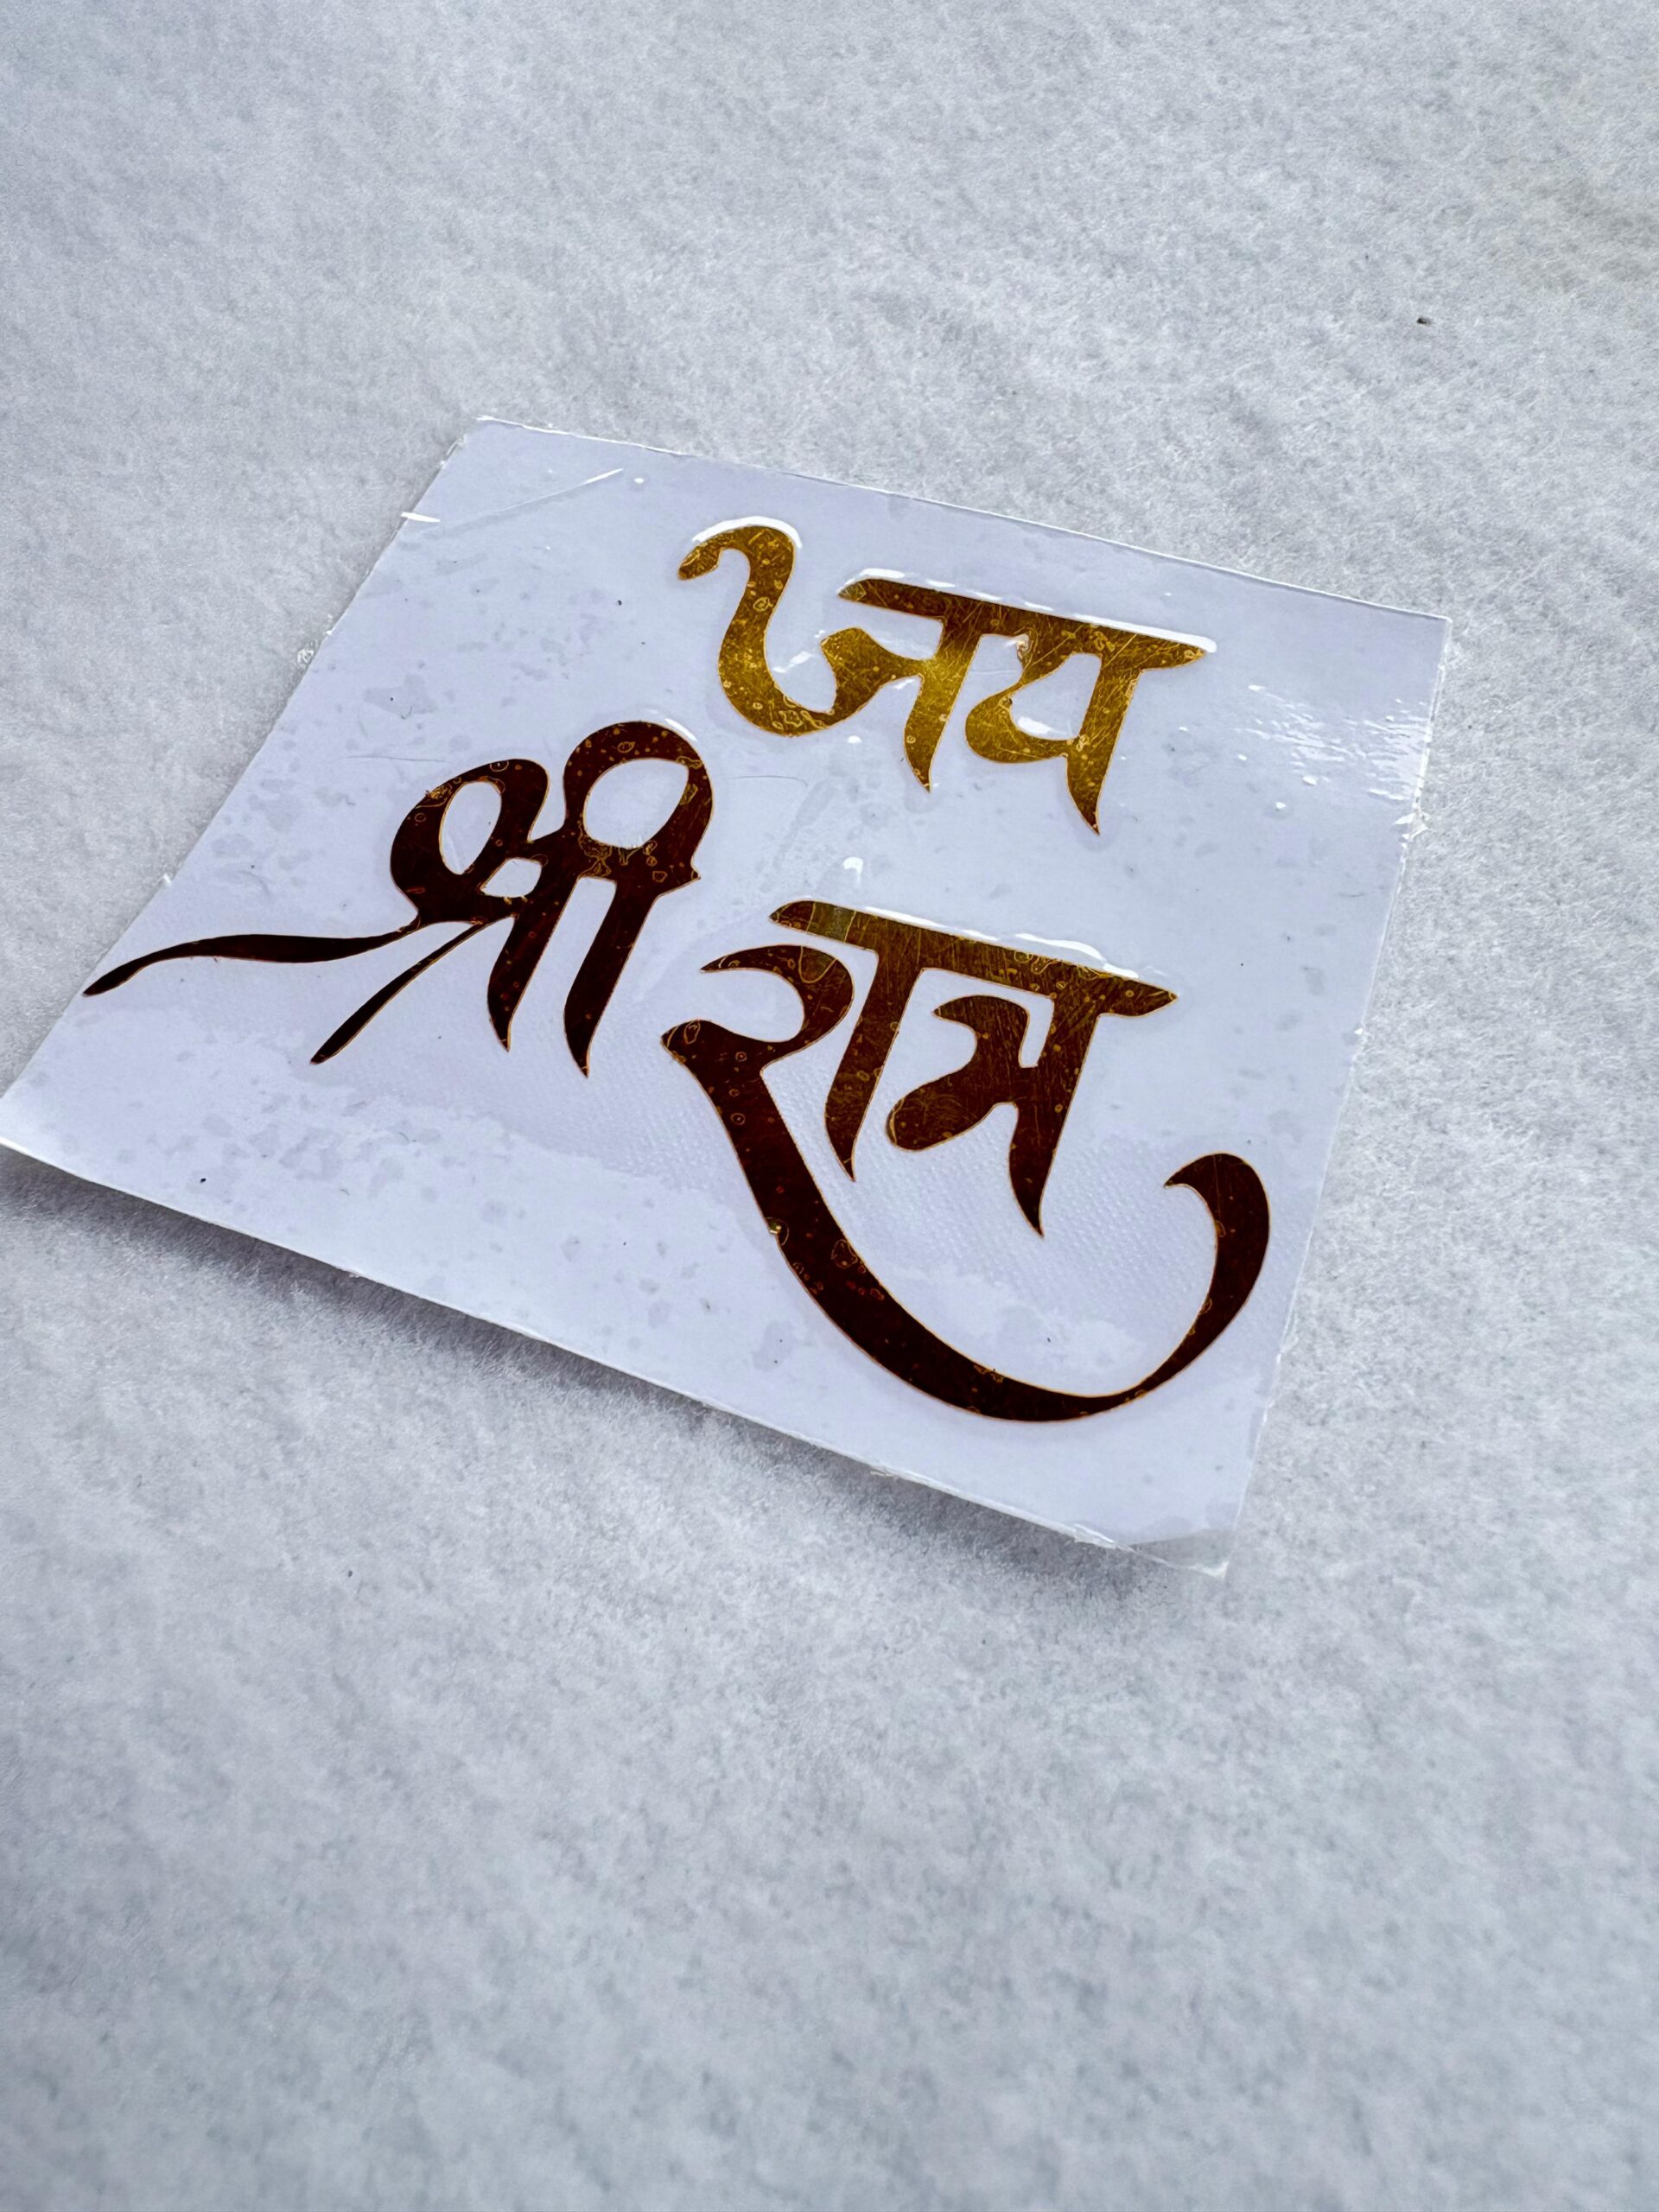 जय
श्री राम